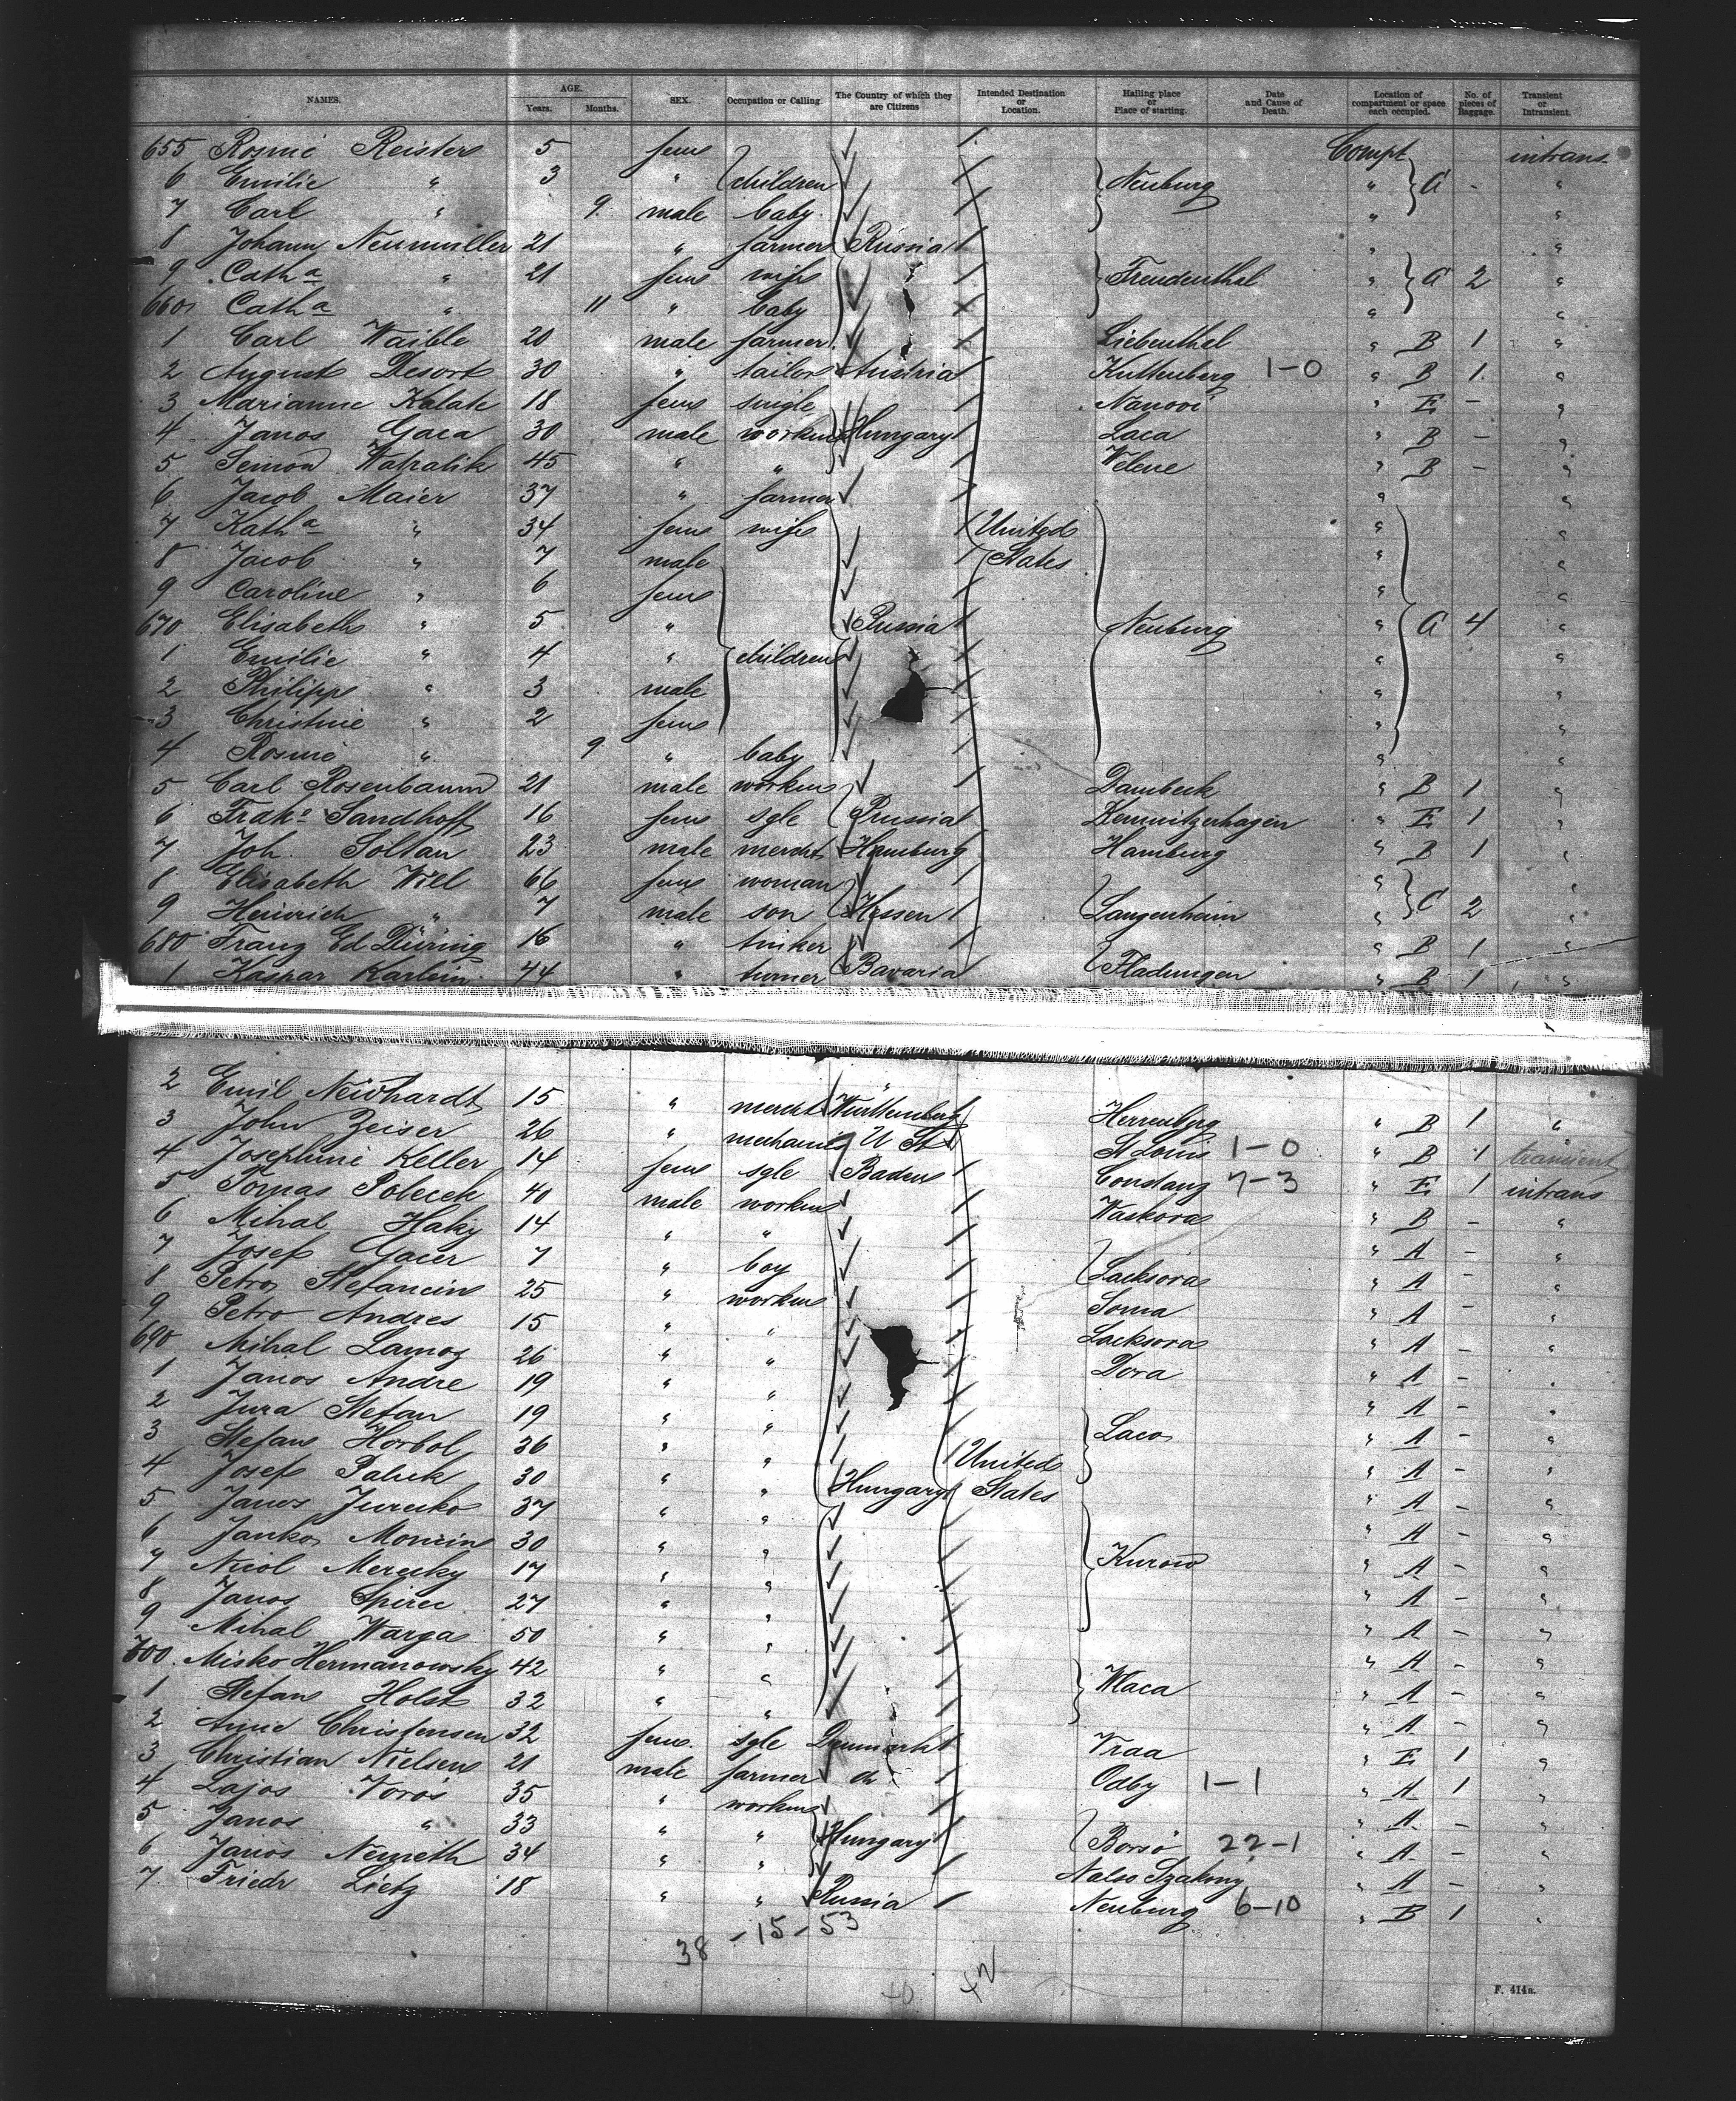 NAMES. AGE. Years. Months. SEX. Occupation or Calling. The Country of which they are Citizens Intended Destination or Location. Hailing place or Place of starting. Date and Cause of Death. Location of compartment or space each occupied. No. of pieces of Baggage. Transient or Intransient.
655 Rosine Reister 5 fem Compt intrans
6 Emilie " 3 " children Neuburg " A - "
7 Carl " 9 male baby " "
8 Johann Neumuller 21 " farmer Russia " "
9 Cath a " 21 fem wife Freudenthal " A 2 "
660 Cath a " 11 " baby " "
1 Carl Waible 20 male farmer Liebenthal " B 1 "
2 August Desort 30 " tailor Austria Kuttenberg 1-0 " B 1 "
3 Marianne Kalak 18 fem single " E - "
4 Janos Gaca 30 male worker Hungary Laca " B - "
5 45 " " Velene " B - "
6 Jacob Maier 37 " farmer " "
7 Kath a " 34 fem wife United " "
8 Jacob " 7 male States " "
9 Caroline " 6 fem " "
670 Elisabeth " 5 " Russia Neuburg " A 4 "
1 Emilie " 4 " children " "
2 Philipp " 3 male " "
3 Christine " 2 fem " "
4 Rosine " 9 " baby " "
5 Carl Rosenbaum 21 male worker Dambeck " B 1 "
6 Sandhoff 16 fem sgle Prussia Kemnitzerhagen " E 1 "
7 Joh. Soltau 23 male mercht Hamburg Hamburg " B 1 "
8 Elisabeth Will 66 fem woman " "
9 Heinrich " 7 male son Hessen Langenhain " C 2 "
680 Franz Ed Düring 16 " tinker " B 1 "
1 Kaspar Karlein 44 " turner Bavaria Fladungen " B 1 "
2 Emil Neidhardt 15 " mercht Württemberg Herrenberg " B 1 "
3 John Zeiser 26 " mechanic U St St Louis 1-0 " B 1 transient
4 Josephine Keller 14 fem sgle Baden Constanz 7-3 " E 1 intrans
5 Tomas Polecek 40 male worker Waskora " B - "
6 Mihal Haky 14 " " " A - "
7 Josef Gacer 7 " boy Lacksora " A - "
8 Petro Stefancin 25 " worker Soma " A - "
9 Petro Andres 15 " " Lacksora " A - "
690 Mihal Lamos 26 " " Dora " A - "
1 Janos Andre 19 " " " A - "
2 Jura Stefan 19 " " Laco " A - "
3 Stefan Horbol 36 " " United " A - "
4 Josef 30 " " Hungary States " A - "
5 Janos Jurcko 37 " " " A - "
6 Janko 30 " " Kurow " A - "
7 Nicol Merecky 17 " " " A - "
8 Janos Spirec 27 " " " A - "
9 Mihal Warga 50 " " " A - "
700 Misko Hermanowsky 42 " " Waca " A - "
1 Stefan Holst 32 " " " A - "
2 Anne Christensen 32 fem. sgle Denmark Traa " E 1 "
3 Christian Nielsen 21 male farmer do Odby 1-1 " A 1 "
4 Lajos Voros 35 " worker " A - "
5 Janos " 33 " " Hungary Borsó 22-1 " A - "
6 Janos Nemeth 34 " " " A - "
7 Friedr Lietz 18 " " Russia Neuburg 6-10 " B 1 "
38 -15-53
40 42
F. 414a.